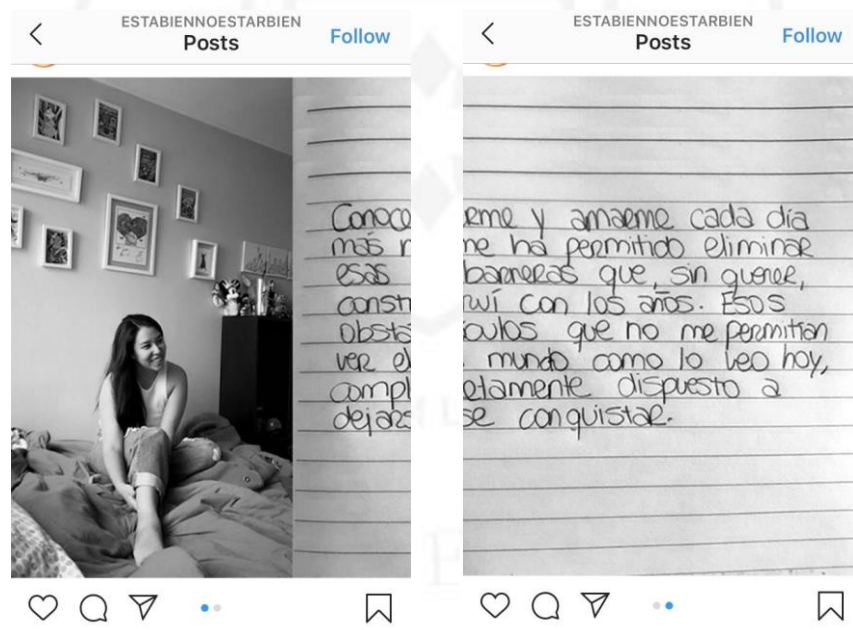 ESTABIENNOESTARBIEN
Posts
Follow
Conoce
más
esas
const
Obstá
ver el
compl
dejars
ESTABIENNOESTARBIEN
Posts
Follow
rme y amarme cada día
me ha permitido eliminar
barreras que, sin querer,
ruí con los años. Esos
culos que no me permitían
mundo como lo veo hoy,
etamente dispuesto a
se conquistar.